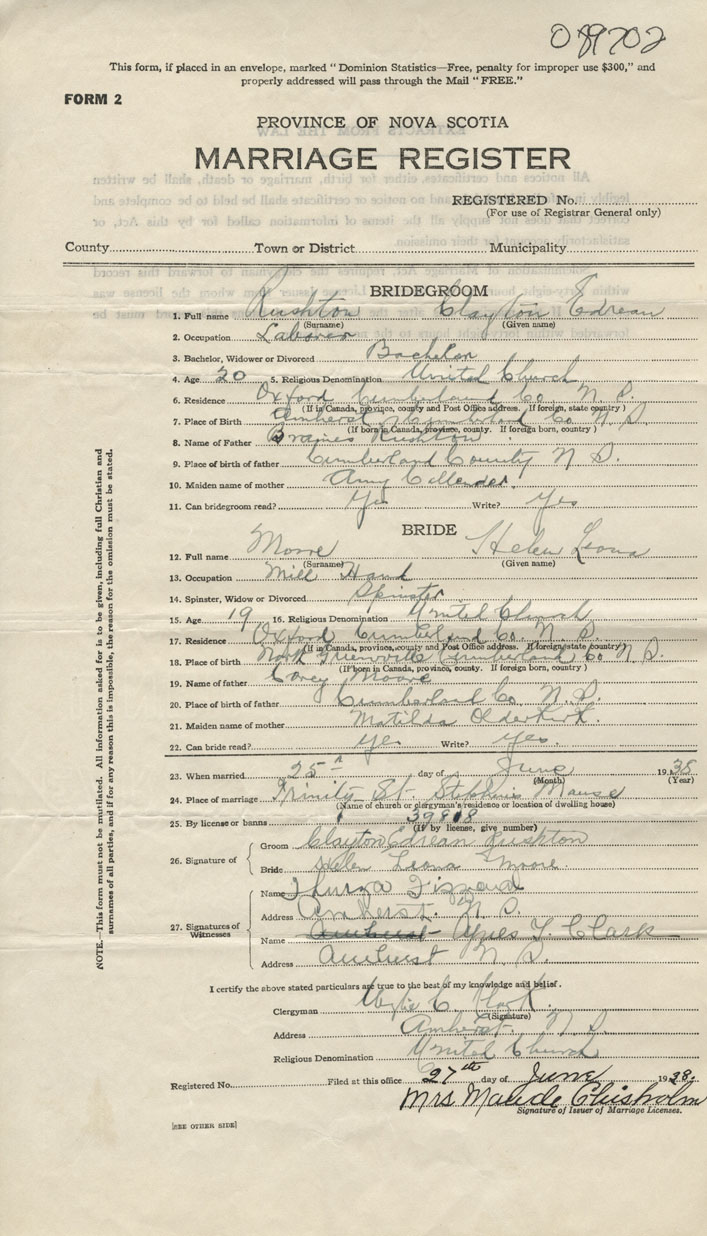 089702
This form, if placed in an envelope, marked "Dominion Statistics—Free, penalty for improper use $300," and
properly addressed will pass through the Mail "FREE."
FORM 2
PROVINCE OF NOVA SCOTIA
MARRIAGE REGISTER
REGISTERED No.
(For use of Registrar General only)
County Town or District Municipality
BRIDEGROOM
1. Full name Rushton Clayton Edrean
(Surname) (Given name)
2. Occupation Laborer
3. Bachelor, Widower or Divorced Bachelor
4. Age 20 5. Religious Denomination United Church
6. Residence Oxford Cumberland Co N. S.
(If in Canada, province, county and Post Office address. If foreign, state country)
7. Place of Birth Amherst Cumberland Co N S
(If born in Canada, province, county. If foreign born, country)
8. Name of Father Rushton
9. Place of birth of father Cumberland County N S.
10. Maiden name of mother Amy Callender
11. Can bridegroom read? Yes Write? Yes
BRIDE
12. Full name Moore Helen Leona
(Surname) (Given name)
13. Occupation Mill Hand
14. Spinster, Widow or Divorced Spinster
15. Age 19 16. Religious Denomination United Church
17. Residence Oxford Cumberland Co. N. S.
(If in Canada, province, county and Post Office address. If foreign state country)
18. Place of birth North Greenville Cumberland Co N S.
(If born in Canada, province, county. If foreign born, country)
19. Name of father Corey Moore
20. Place of birth of father Cumberland Co N. S.
21. Maiden name of mother Matilda Olderkirk.
22. Can bride read? Yes Write? Yes.
23. When married 25th day of June 1938
(Month) (Year)
24. Place of marriage Trinity St. Stephens Manse
(Name of church or clergyman's residence or location of dwelling house)
25. By license or banns 39818
(If by license, give number)
26. Signature of Groom Clayton Edrean Rushton
Bride Helen Leona Moore.
27. Signatures of Witnesses
Name Thurza
Address Amherst. N. S.
Name Amherst Agnes T. Clark
Address Amherst N. S.
I certify the above stated particulars are true to the best of my knowledge and belief.
Clergyman Clark.
(Signature)
Address Amherst. N. S.
Religious Denomination United Church
Registered No. Filed at this office 27th day of June 1938.
Mrs. Maude Chisholm
Signature of Issuer of Marriage Licenses.
[SEE OTHER SIDE]
NOTE.—This form must not be mutilated. All information asked for is to be given, including full Christian and
surnames of all parties, and if for any reason this is impossible, the reason for the omission must be stated.